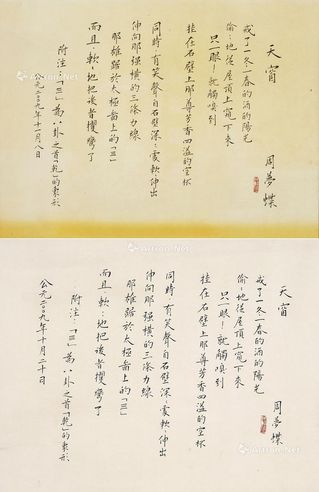 天窗
周夢蝶
戒了一冬一春的酒的陽光
偷偷地從屋頂上窺下來
只一眼!就觸嗅到
挂在石壁上那尊芳香四溢的空杯
同時,有笑聲自石壁深深處軟軟伸出
伸向那強橫的三條力線
那雄踞於太極圖上的「☰」
而且,軟軟地把後者攫彎了
附注:「☰」為八卦之首「乾」的象形
公元二〇〇九年十一月八日
天窗
周夢蝶
戒了一冬一春的酒的陽光
偷偷地從屋頂上窺下來
只一眼!就觸嗅到
挂在石壁上那尊芳香四溢的空杯
同時,有笑聲自石壁深深處軟軟伸出
伸向那強橫的三條力線
那雄踞於太極圖上的「☰」
而且,軟軟地把後者攫彎了
附注:「☰」為八卦之首「乾」的象形
公元二〇〇九年十月二十日